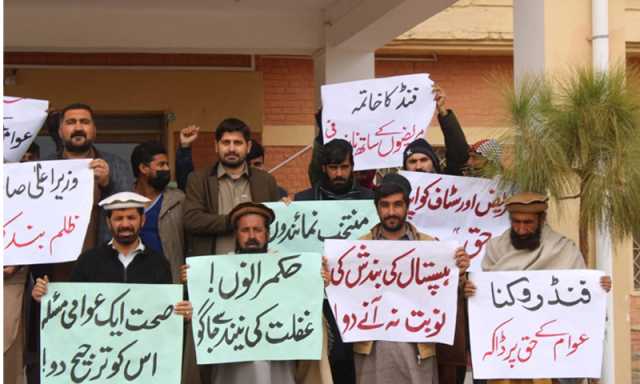 عوام کے
وزیر اعلیٰ صا
ظلم بند کر
فنڈ کا خاتمہ
مریضوں کے ساتھ ناانصافی
مریض اور سٹاف کو اپنا
حق
منتخب نمائندوں
صحت ایک عوامی مسئلہ
اس کو ترجیح دو!
حکمرانوں!
غفلت کی نیند سے جاگو
ہسپتال کی بندش کی
نوبت نہ آنے دو!
فنڈ روکنا
عوام کے حق پر ڈاکہ